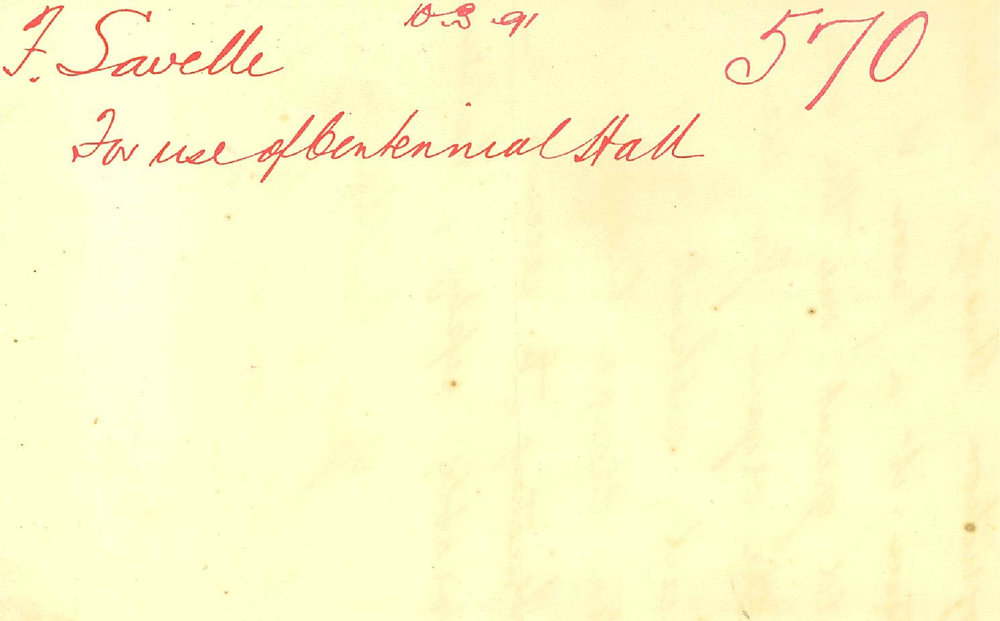 F. Savelle 10.3.91 570
For use of Centennial Hall